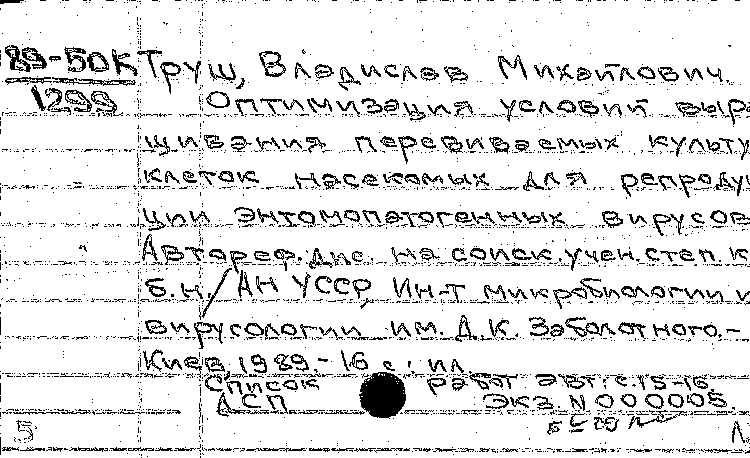 89-50К Труш, Владислав Михайлович.
1299 Оптимизация условий выра
щивания перевиваемых культу
клеток насекомых для репродук
ции энтомопатогенных вирусов
Автореф. дис. на соиск. учен. степ. к
б.н. / АН УССР, Ин-т микробиологии и
вирусологии им. Д.К. Заболотного.-
Киев, 1989.- 16 с.: ил.
Список работ авт.: с.15-16.
ДСП Экз. N 000005.
5